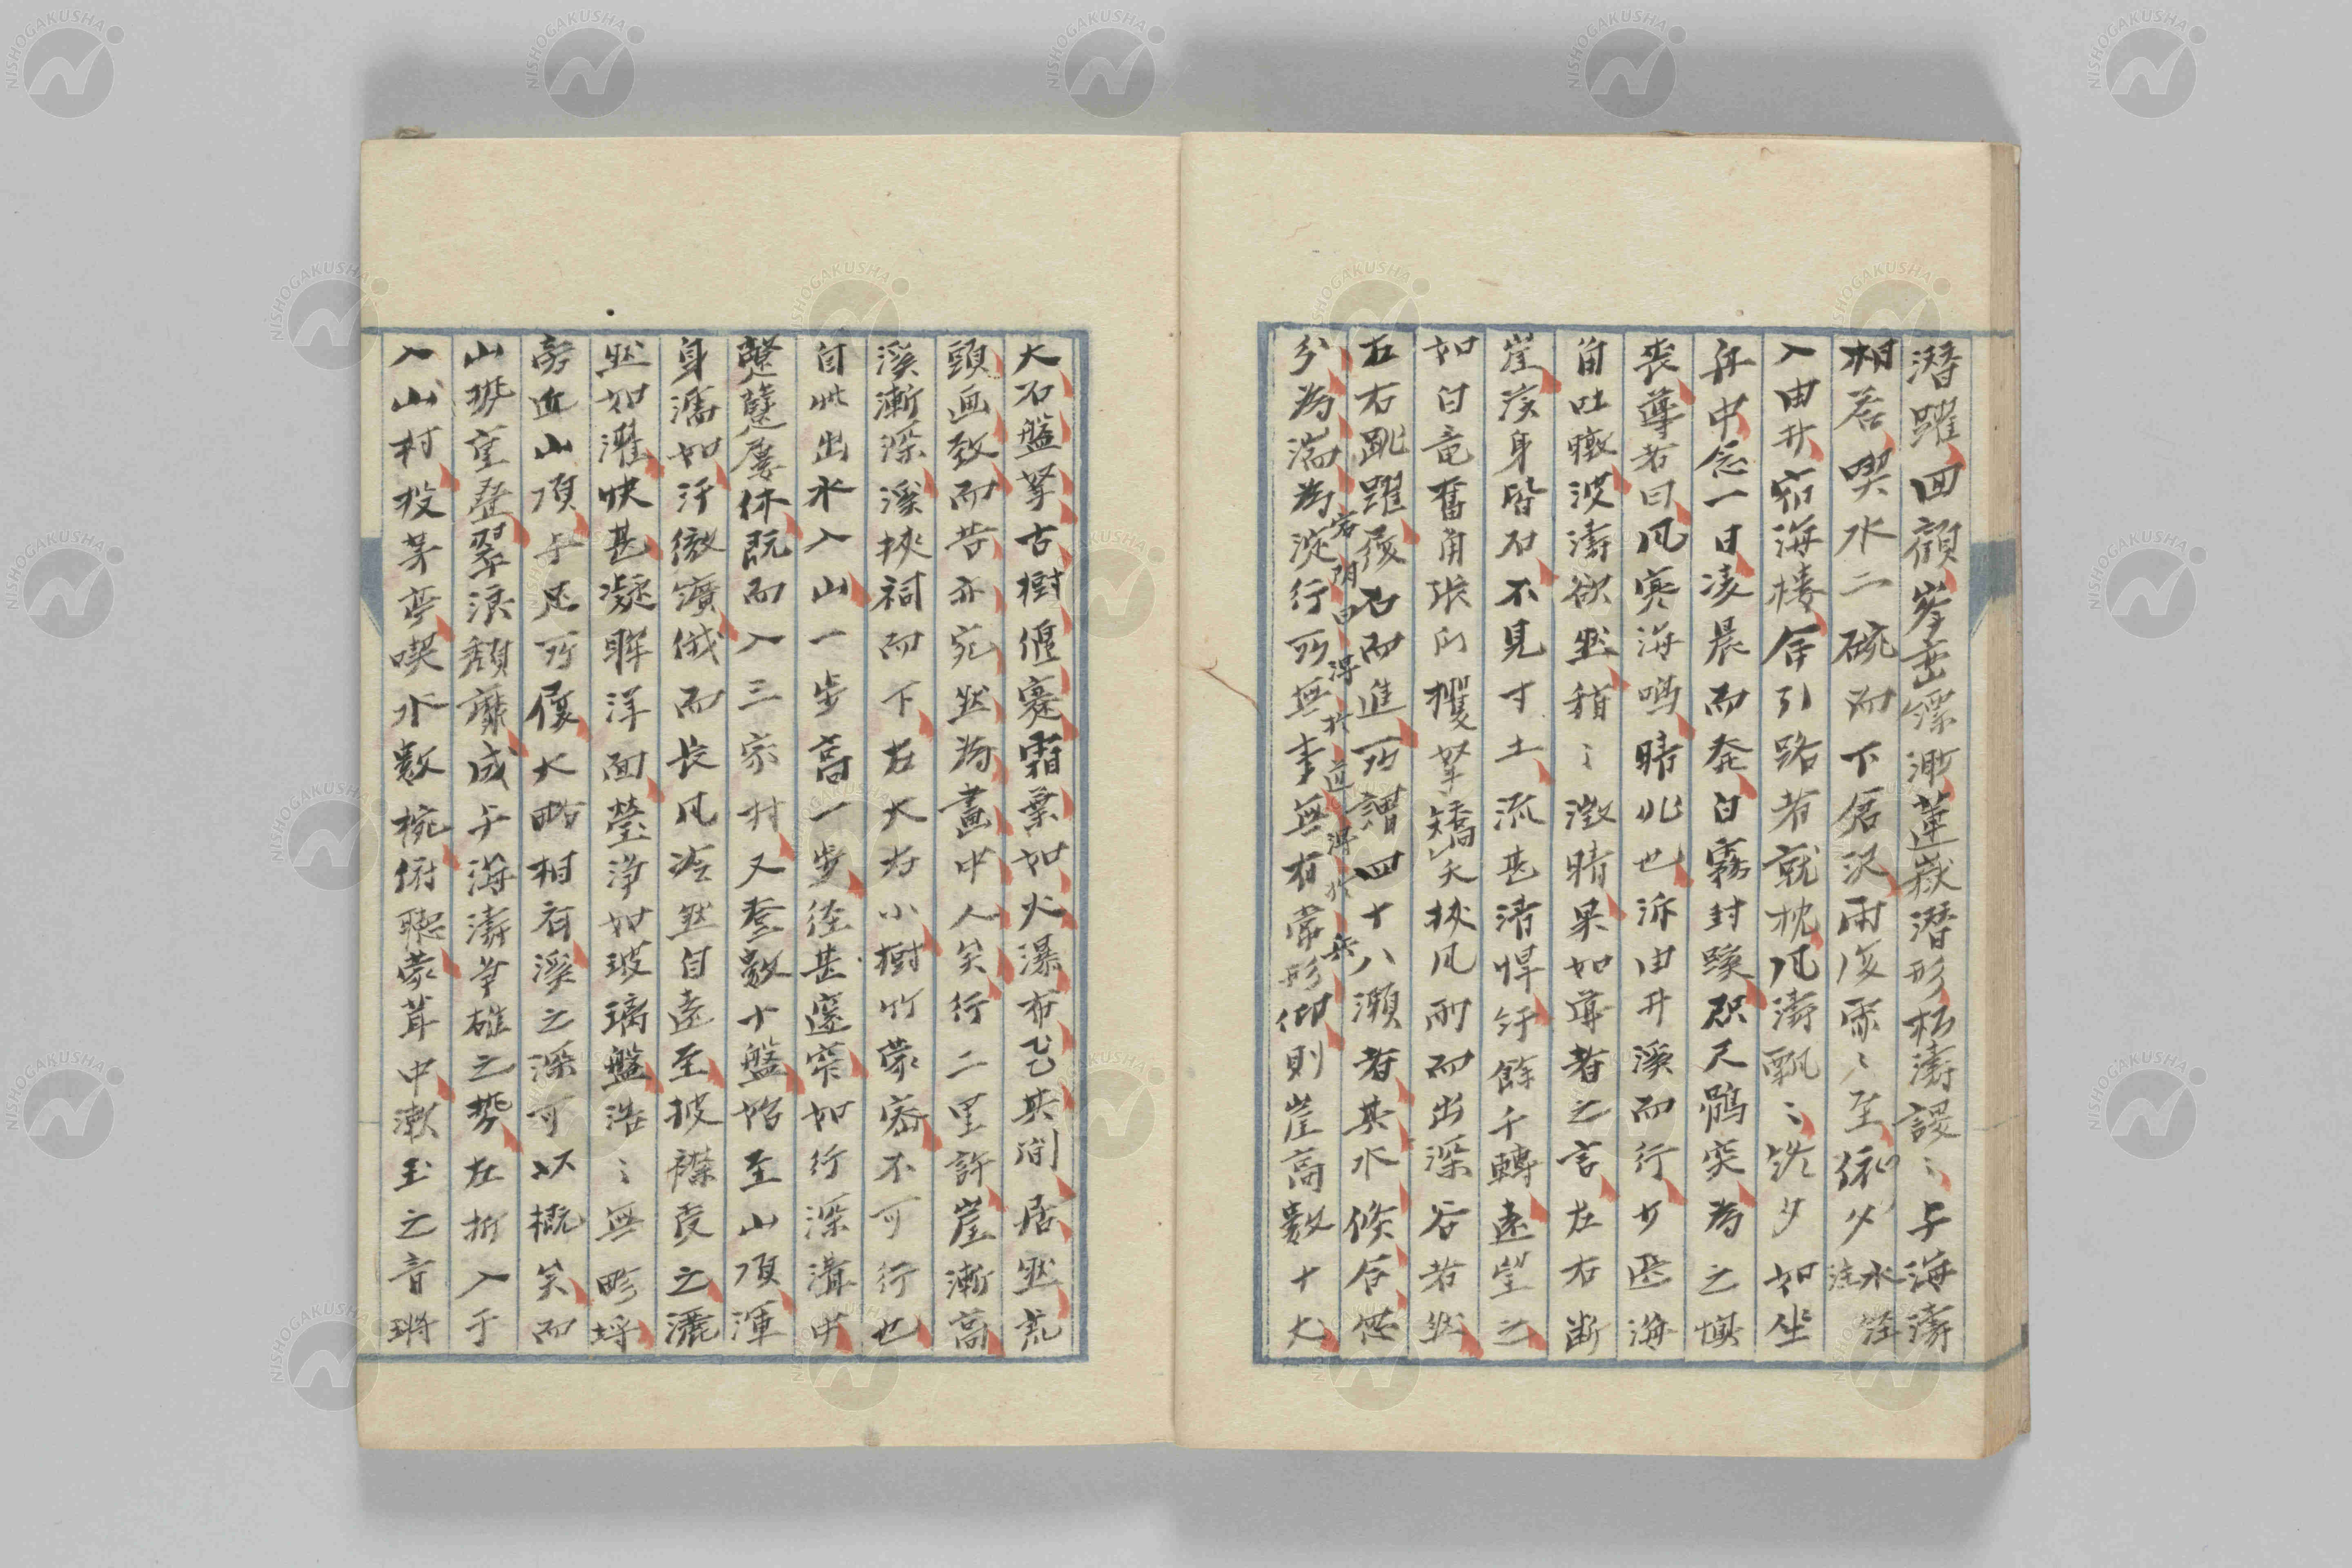 潜躍回顧峯巒縹渺蓮嶽潜形松濤謖〻与海濤
相若喫水二碗而下倉沢雨復霏〻至
入由井宿海楼舎引路者就枕風濤飄〻然夕如坐
舟中念一日凌晨而発白霧封蹊咫尺鶻突為之惧
喪導者曰風寒海鳴晴兆也泝由井溪而行少医海
角吐暾波濤欲然稍〻澂晴果如導者之言左右断
崖渓身皆石不見寸土流甚清悍紆餘千轉遠望之
如白竜奮角張爪攫拏矯矢挾風雨而出深谷者然
左右跳躍緣石而進所謂四十八瀬者其水倏合倐
分為湍為淀行所無事無有常形仰則崖高数十丈
大石盤拏古樹偃蹇霜葉如火瀑布乱其間居然荒
頭画致而昔亦宛然為畫中人矣行二里許崖漸高
溪漸深溪挾祠而下左大右小樹竹蒙密不可行也
自此出水入山一歩高一歩径甚窪窄如行深溝中
蹩躄屡休既而入三家村又登数十盤始至山頂渾
身濡如汗徹纊俄而長風泠然自遠至披襟受之灑
然如濯快甚凝眸洋面瑩浄如玻璃盤浩〻無畛埒
旁近山頂与足所履大略相若溪之深可以概矣而
山勢重畳翠浪頽靡成与海濤争雄之勢左折入于
入山村投茅亭喫水数椀俯聴蒙茸中漱玉之音琤